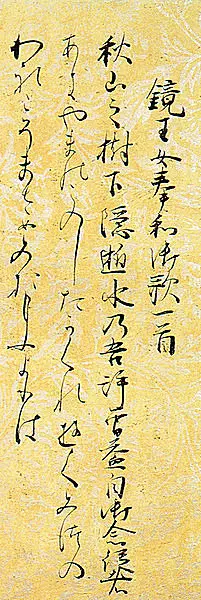 鏡王女奉和御歌一首
秋山之樹下隠逝水乃吾許曽益目御念従者
あきやまのこのしたかくれゆくみつの
われこそまさめおもふよりは